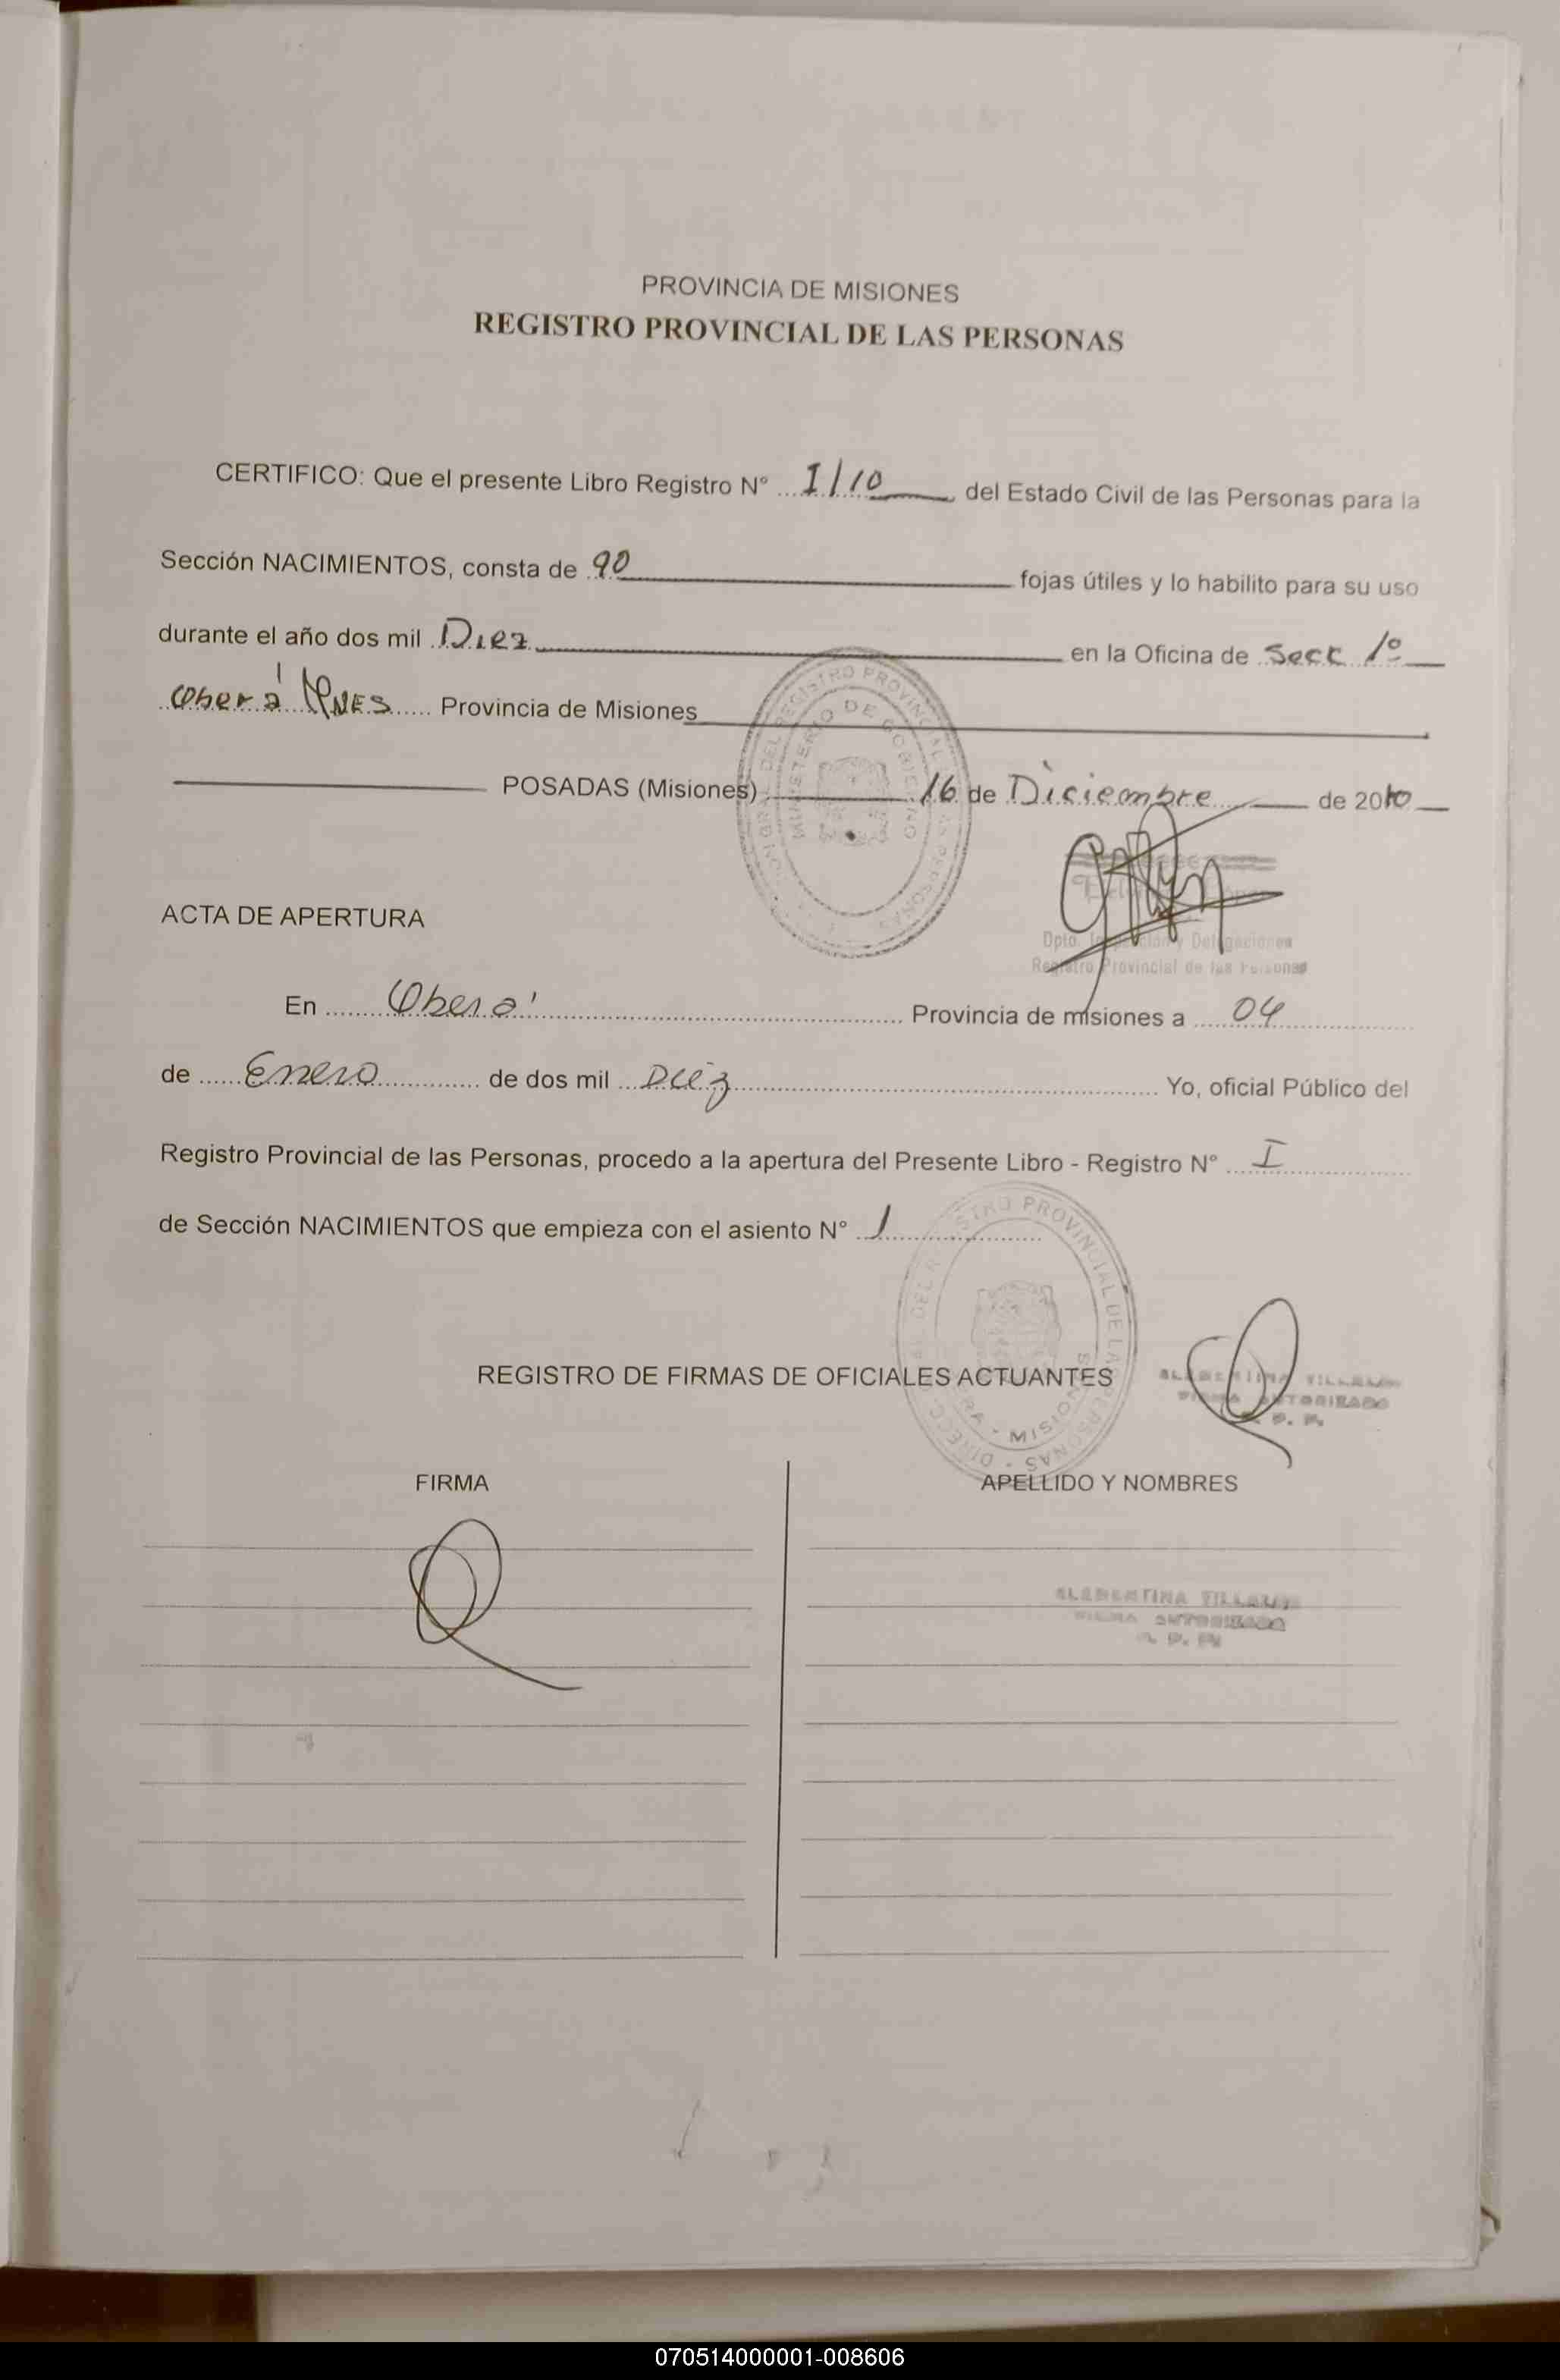 PROVINCIA DE MISIONES
REGISTRO PROVINCIAL DE LAS PERSONAS
CERTIFICO: Que el presente Libro Registro N° I/10 del Estado Civil de las Personas para la
Sección NACIMIENTOS, consta de 90 fojas útiles y lo habilito para su uso
durante el año dos mil Diez en la Oficina de Secc 1º
Oberá Mnes Provincia de Misiones
POSADAS (Misiones) 16 de Diciembre de 2010
Dpto. Inspección y Delegaciones
Registro Provincial de las Personas
ACTA DE APERTURA
En Oberá Provincia de misiones a 04
de Enero de dos mil Diez Yo, oficial Público del
Registro Provincial de las Personas, procedo a la apertura del Presente Libro - Registro N° I
de Sección NACIMIENTOS que empieza con el asiento N° 1
REGISTRO DE FIRMAS DE OFICIALES ACTUANTES
FIRMA APELLIDO Y NOMBRES
FIRMA AUTORIZADO
070514000001-008606